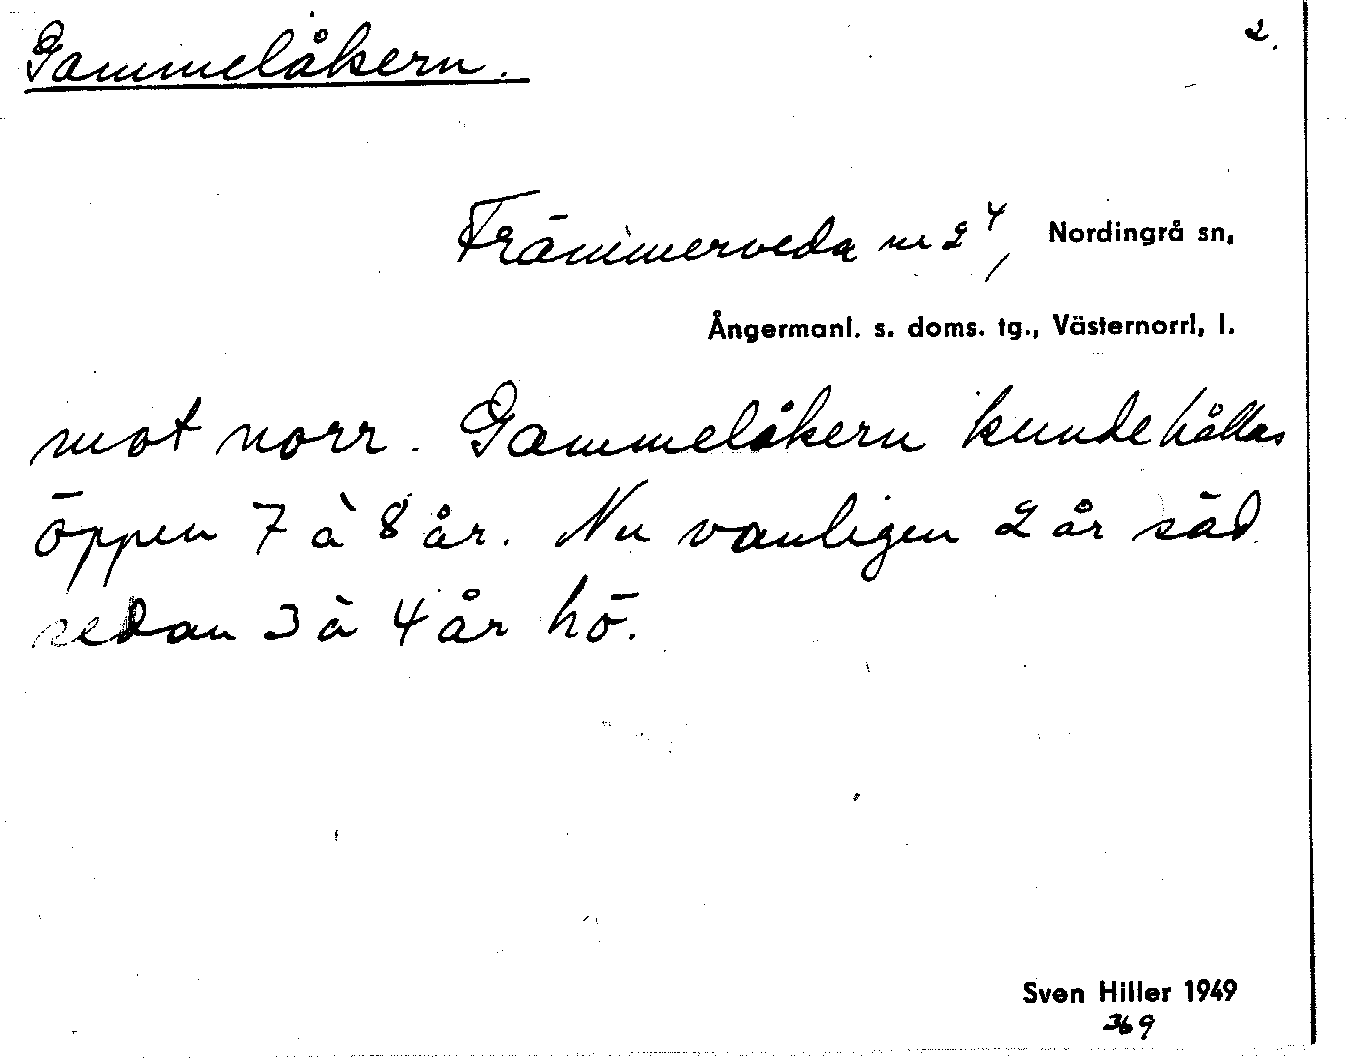 Gammelåkern.
2.
Främmerveda nr 2⁴, Nordingrå sn,
Ångermanl. s. doms. tg., Västernorrl, l.
mot norr. Gammelåkern kunde hållas
öppen 7 à 8 år. Nu vanligen 2 år säd
sedan 3 à 4 år hö.
Sven Hiller 1949
369